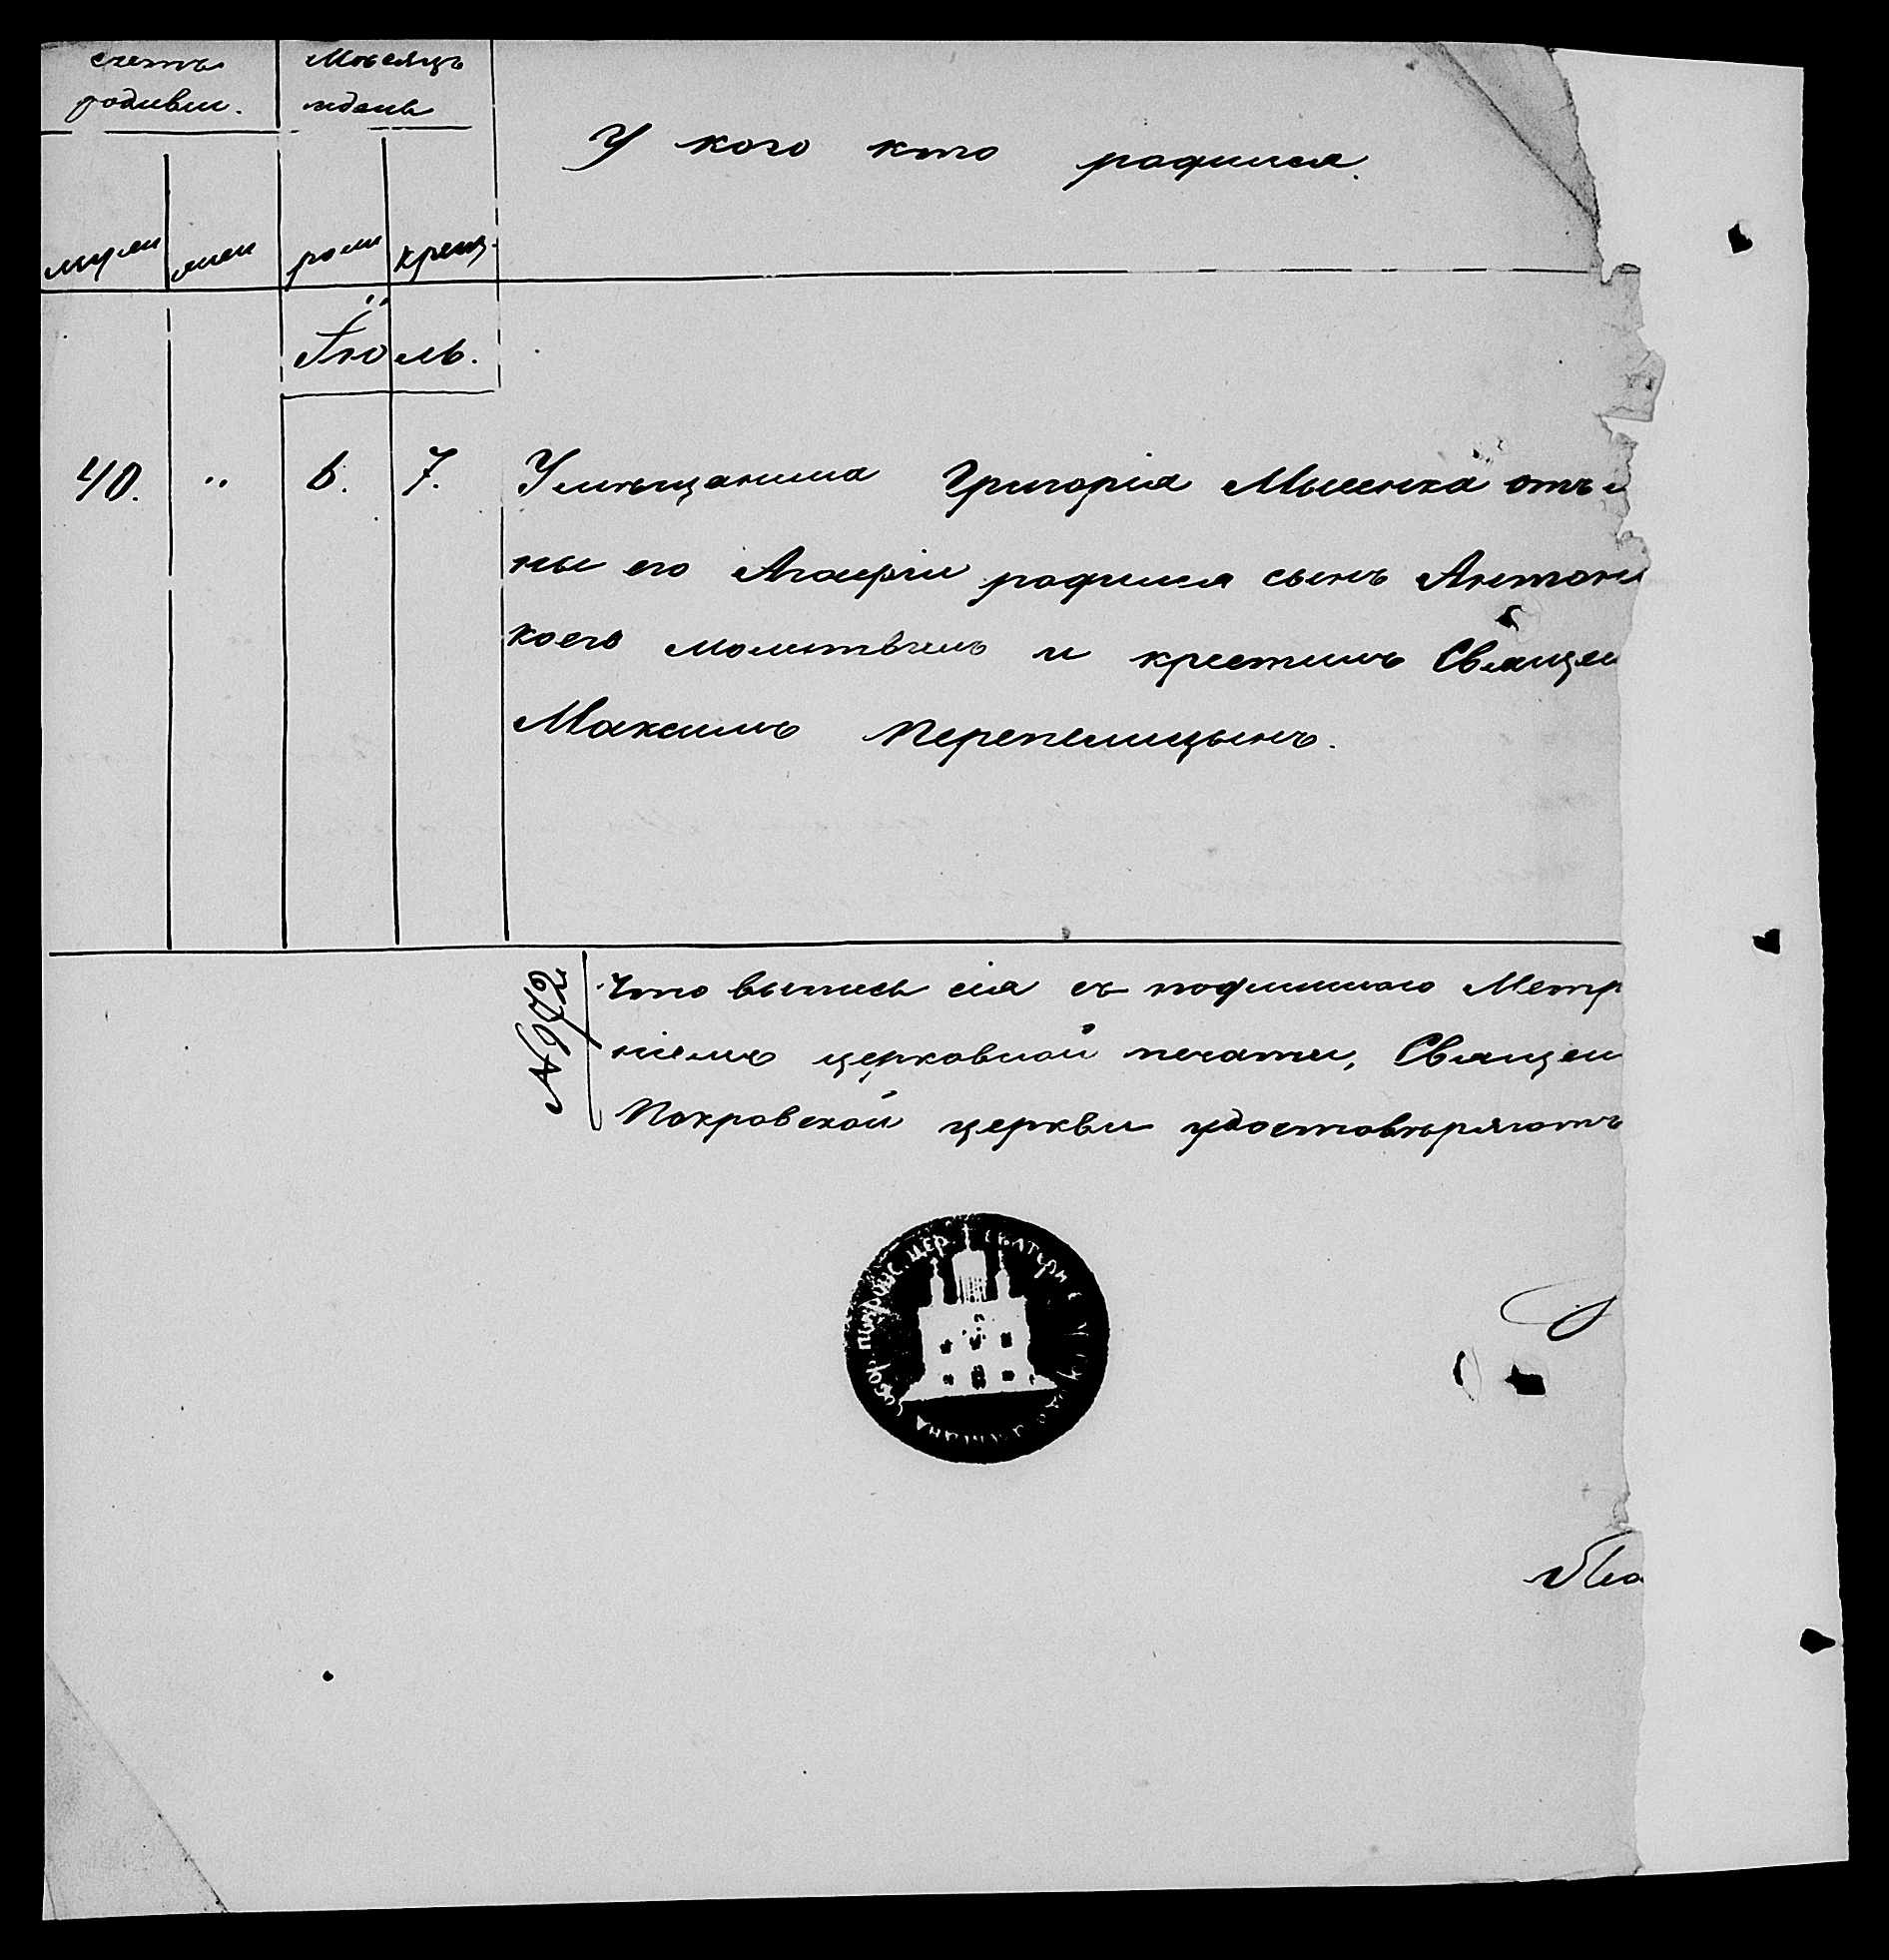 счетъ
родивш.
Мѣсяцъ
и день
У кого кто родился.
муж
жен
рож
крещ.
Іюль.
40. " 6. 7. У мѣщанина Григорія Мысенка отъ
ны его Агафіи родился сынъ Антон
коего молитвилъ и крестилъ Священ
Максимъ Перепелицынъ.
№ 672
Что выпись сія съ подлинною Метр
ніемъ церковной печати, Священ
Покровской церкви удостовѣряютъ